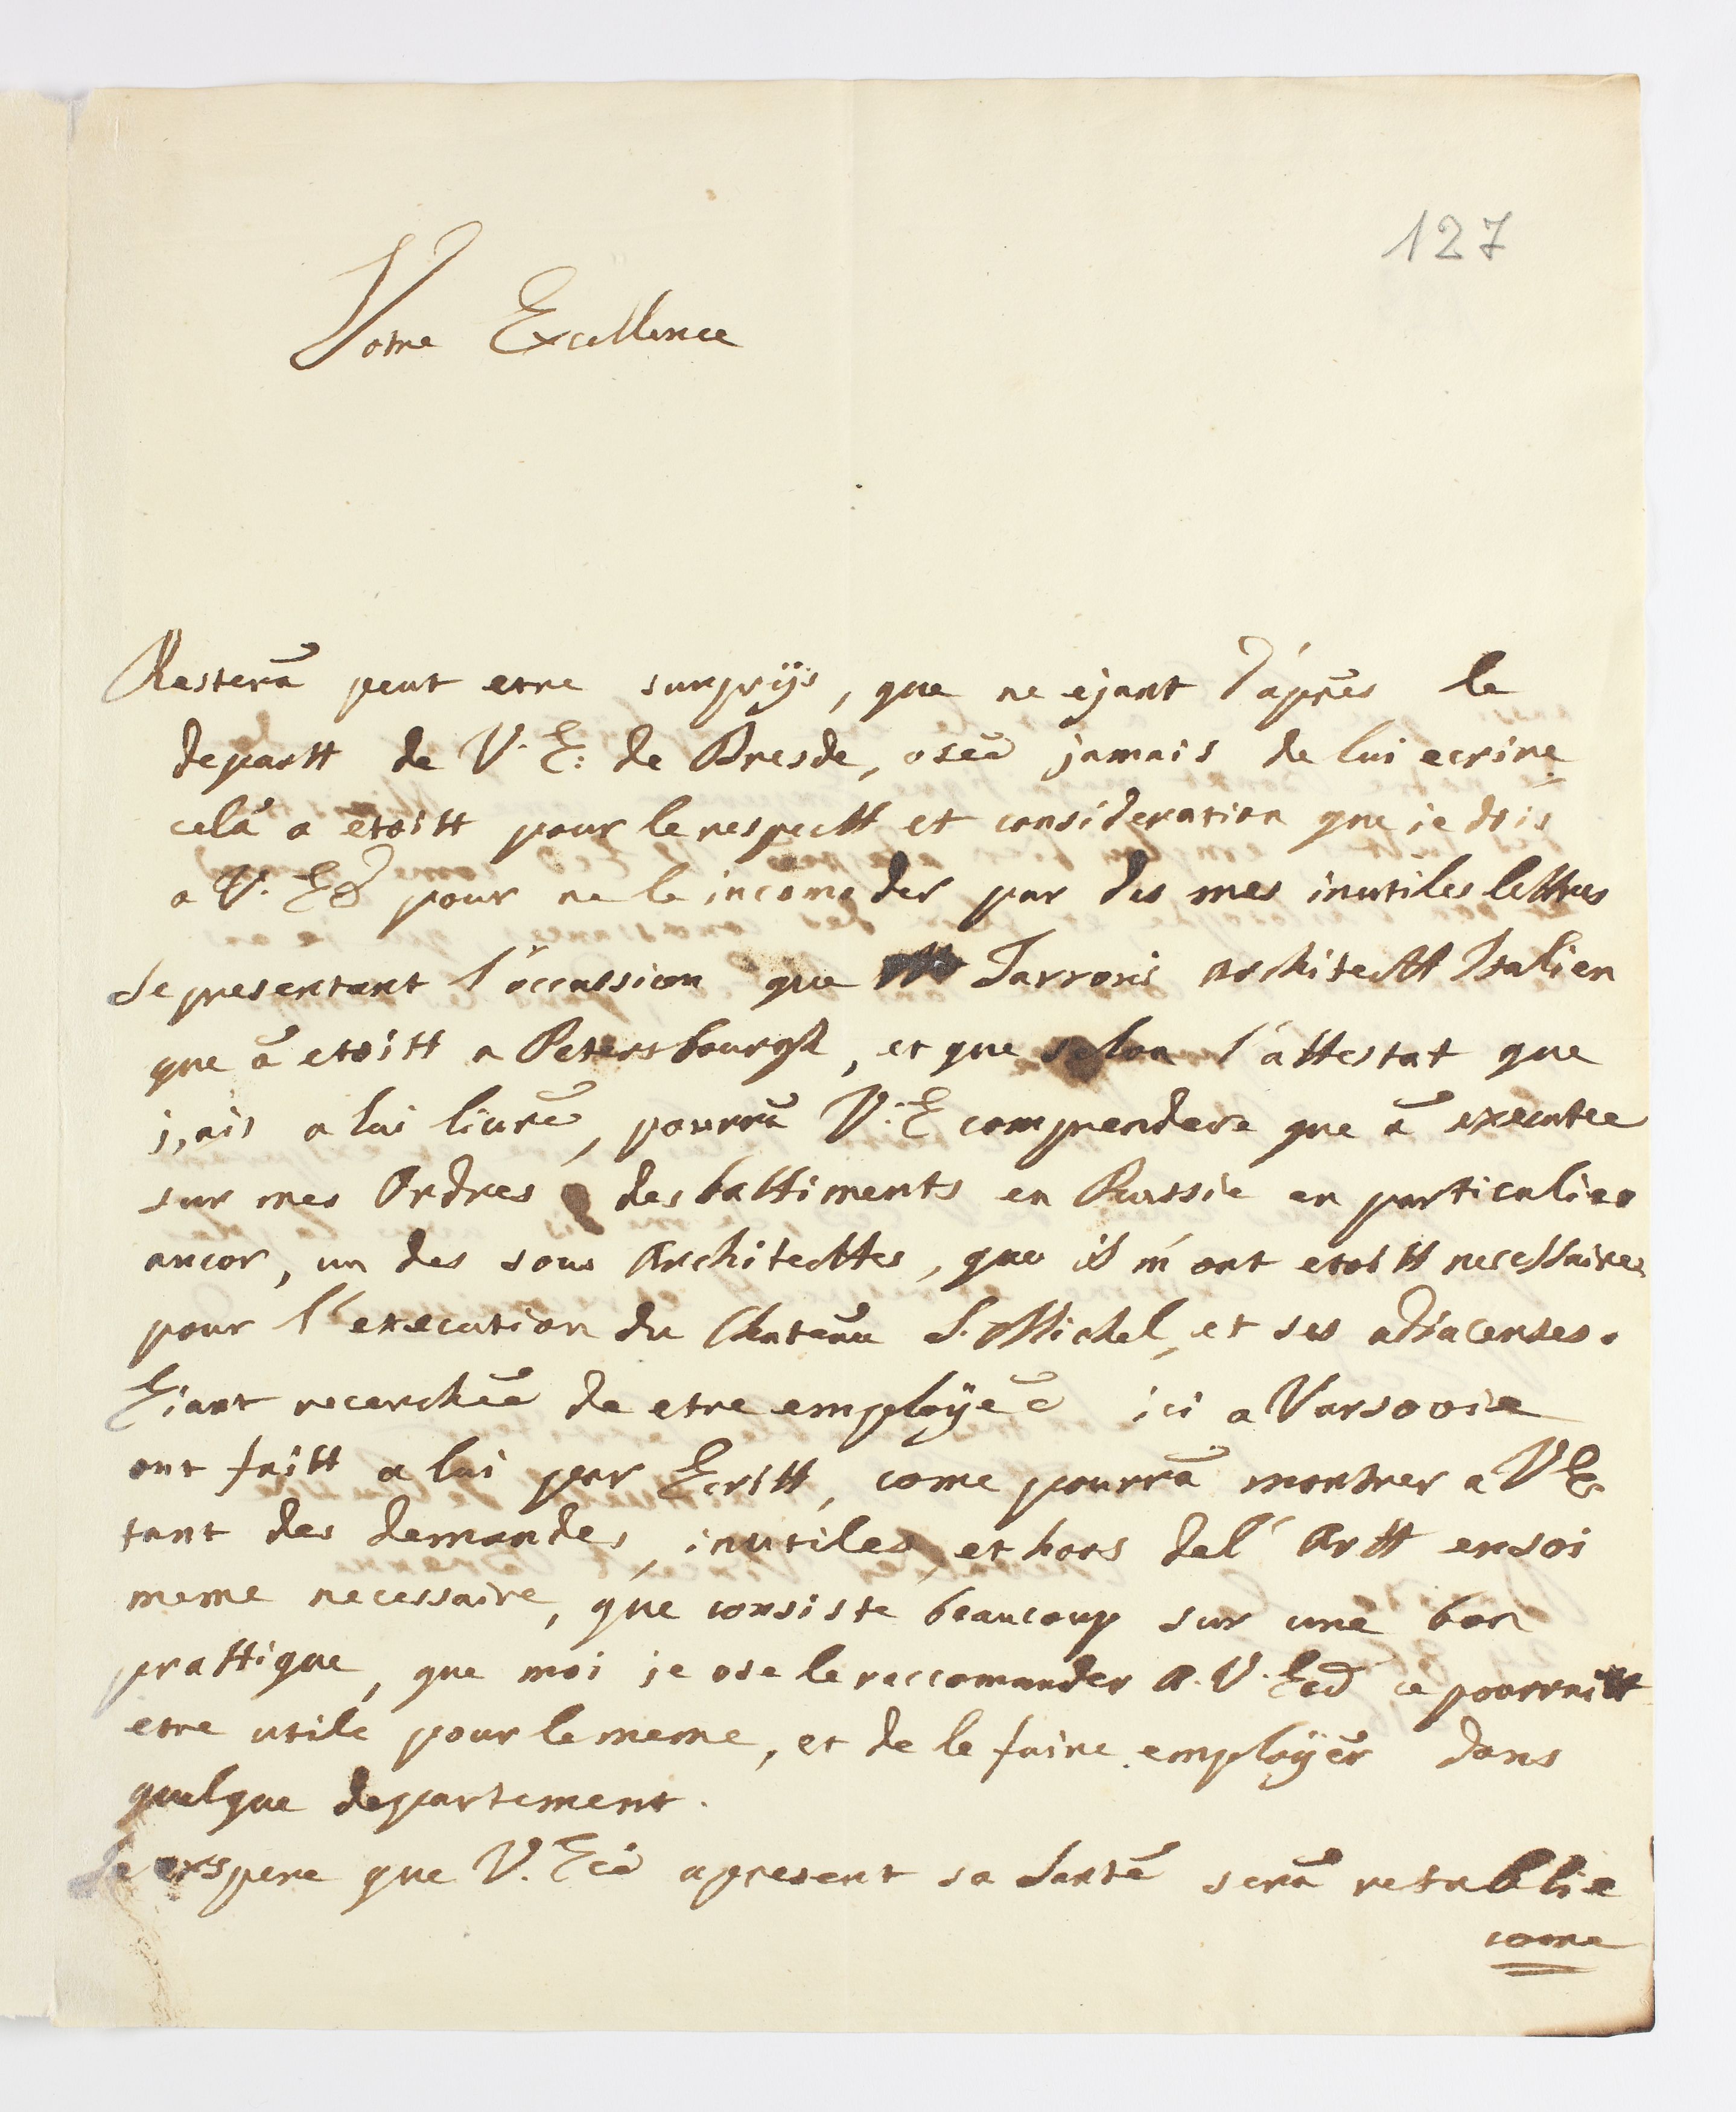 127
Votre Excellence
Resterà peut etre surprijs, que ne ejant d'àprès le
departt de V. E: de Dresde, oseè jamais de lui ecrire
celà a etoitt pour le respectt et consideration que je dois
a V. E pour ne le incomoder par des mes inutiles lettres
Se presentant l'occassion que Tarroni Architectt Italien
que à etoitt a Petersbourgh, et que selon l'attestat que
j,ais a lui livrè, pourrà V. E comprendere que à executee
sur mes Ordres des battiments en Russie en particulier
ancor, un des sous Architecttes, que il m'ont etoitt necessaires
pour l'execution du Chateau S. Michel, et ses adiacenses.
Eiant recercheè de etre employeè ici a Varsovie
ont faitt a lui par Ecritt, come pourrà montrer a V E
tant des demandes, inutiles, et hors del' Artt ensoi
meme necessaire, que consiste beaucoup sur une bon
prattique, que moi je ose le reccomander A. V. E ce pourraitt
etre utile pour le meme, et de le faire employèr dans
quelque departement.
Je exspere que V. E apresent sa Santè serà retablie
come